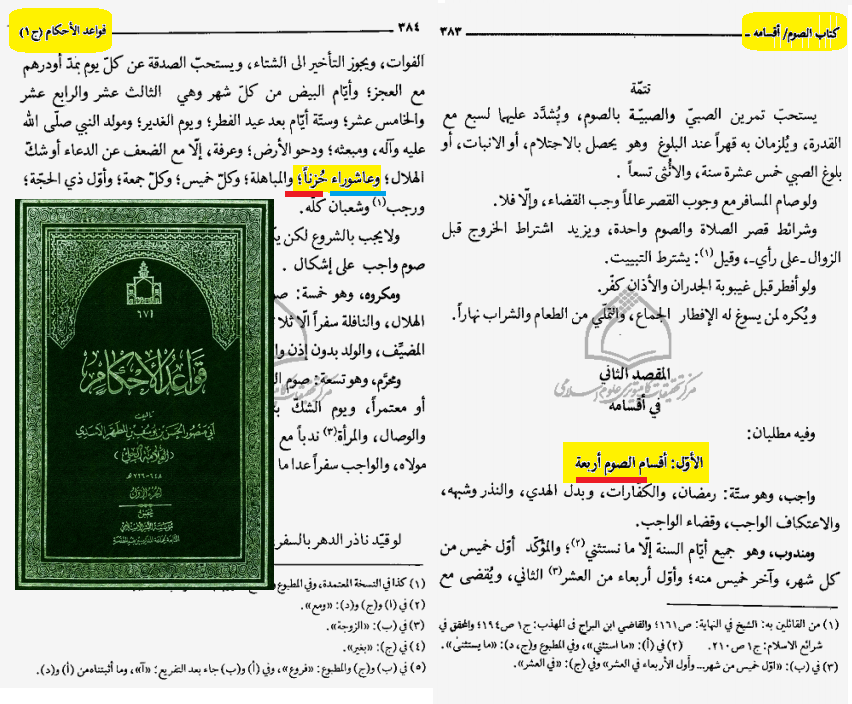 كتاب الصوم/ أقسامه ــ
٣٨٣
تتمّة
يستحبّ تمرين الصبيّ والصبيّة بالصوم، ويُشدَّد عليها لسبع مع
القدرة، ويُلزمان به قهراً عند البلوغ وهو يحصل بالاحتلام، أو الانبات، أو
بلوغ الصبي خمس عشرة سنة، والأُنثى تسعاً.
ولو صام المسافر مع وجوب القصر عالماً وجب القضاء، وإلّا فلا.
وشرائط قصر الصلاة والصوم واحدة، ويزيد اشتراط الخروج قبل
الزوال ـ على رأي ـ، وقيل(١): يشترط التبييت.
ولو أفطر قبل غيبوبة الجدران والأذان كفّر.
ويُكره لمن يسوغ له الإفطار الجماع، والتملّي من الطعام والشراب نهاراً.
المقصد الثاني
في أقسامه
وفيه مطلبان:
الأوّل: أقسام الصوم أربعة
واجب، وهو ستّة: رمضان، والكفّارات، وبدل الهدي، والنذر وشبهه،
والاعتكاف الواجب، وقضاء الواجب.
ومندوب، وهو جميع أيّام السنة إلّا ما نستثني(٢)؛ والمؤكّد أوّل خميس من
كلّ شهر، وآخر خميس منه؛ وأوّل أربعاء من العشر(٣) الثاني، ويُقضى مع
(١) من القائلين به: الشيخ في النهاية: ص١٦١؛ والقاضي ابن البراج في المهذب: ج١ ص١٩٤؛ والمحقق في
شرائع الاسلام: ج١ ص٢١٠. (٢) في (أ): «ما استثني»، وفي المطبوع و(ج، د): «ما يستثنىٰ».
(٣) في (ب): «اوّل خميس من شهر... وأول الأربعاء في العشر» وفي (ج): «في العشر».
٣٨٤
قواعد الأحكام (ج١)
الفوات، ويجوز التأخير الى الشتاء، ويستحبّ الصدقة عن كلّ يوم بمدّ أو درهم
مع العجز؛ وأيّام البيض من كلّ شهر وهي الثالث عشر والرابع عشر
والخامس عشر؛ وستّة أيّام بعد عيد الفطر؛ ويوم الغدير؛ ومولد النبي صلّى الله
عليه وآله، ومبعثه؛ ودحو الأرض؛ وعرفة، إلّا مع الضعف عن الدعاء أو شكّ
الهلال؛ وعاشوراء حُزناً؛ والمباهلة؛ وكلّ خميس؛ وكلّ جمعة؛ وأوّل ذي الحجّة؛
ورجب(١) وشعبان كلّه.
ولا يجب بالشروع لكن
صوم واجب على إشكال.
ومكروه، وهو خمسة:
الهلال، والنافلة سفراً الّا
المضيِّف، والولد بدون إذن
ومحرّم، وهو تسعة: صوم
أو معتمراً، ويوم الشكّ
والوصال، والمرأة(٣) ندباً مع
مولاه، والواجب سفراً عدا ما
لو قيّد ناذر الدهر بالسفر
(١) كذا في النسخة المعتمدة، وفي المطبوع
(٢) في (ا) و(ج) و(د): «ومع».
(٣) في (ب): «الزوجة».
(٤) في (ج): «بغير».
(٥) في (ب) و(ج) والمطبوع: «فروع»، وفي (أ) و(ب) جاء بعد التفريع: «آ»، وما أثبتناه من (أ) و(د).
٦٧١
قواعد الأحكام
تأليف
أبي منصور الحسن بن يوسف بن المطهر الأسدي
(العلامة الحلي)
٦٤٨ - ٧٢٦ هـ
الجزء الأول
تحقيق
مؤسسة النشر الإسلامي
مركز تحقيقات كامپيوترى علوم اسلامى